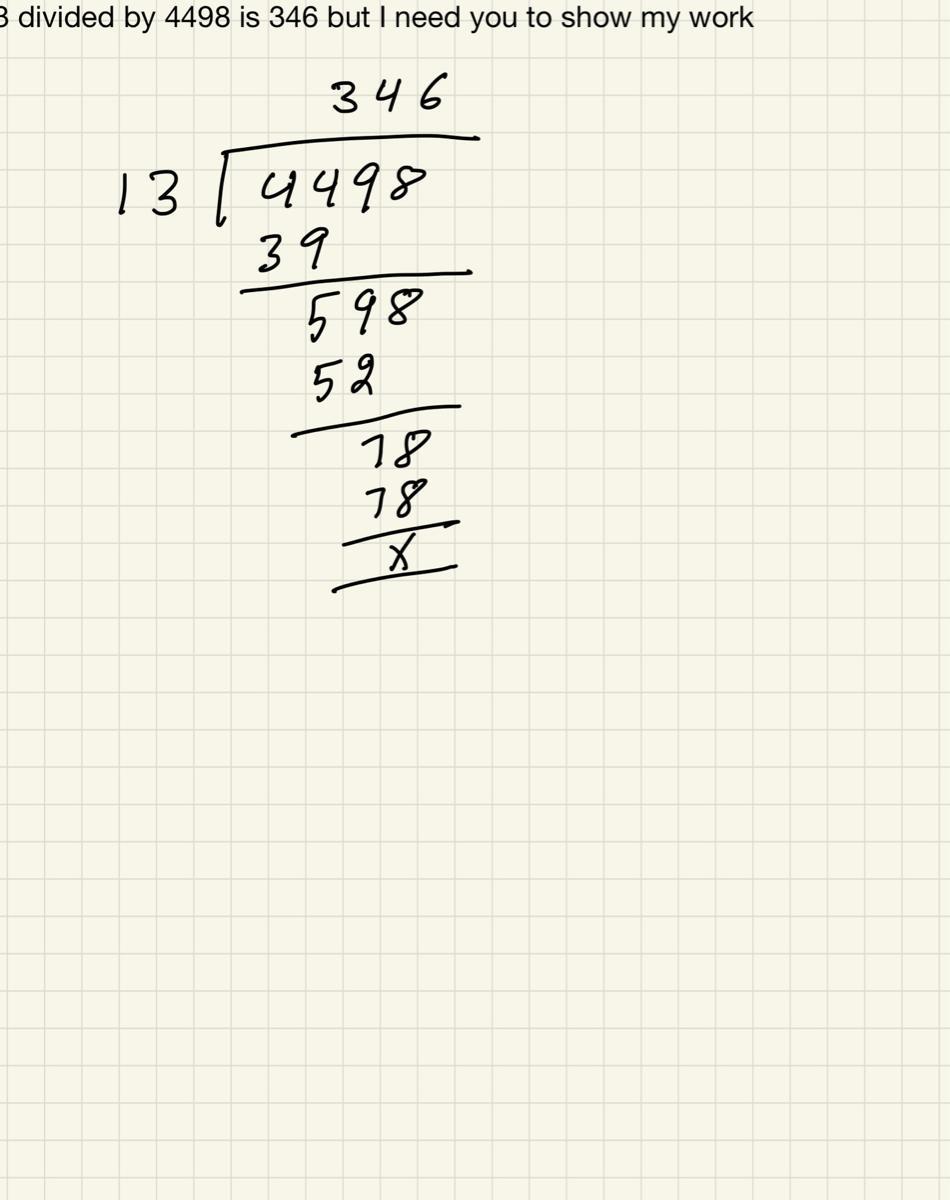 3 divided by 4498 is 346 but I need you to show my work
346
13 4498
39
598
52
78
78
x